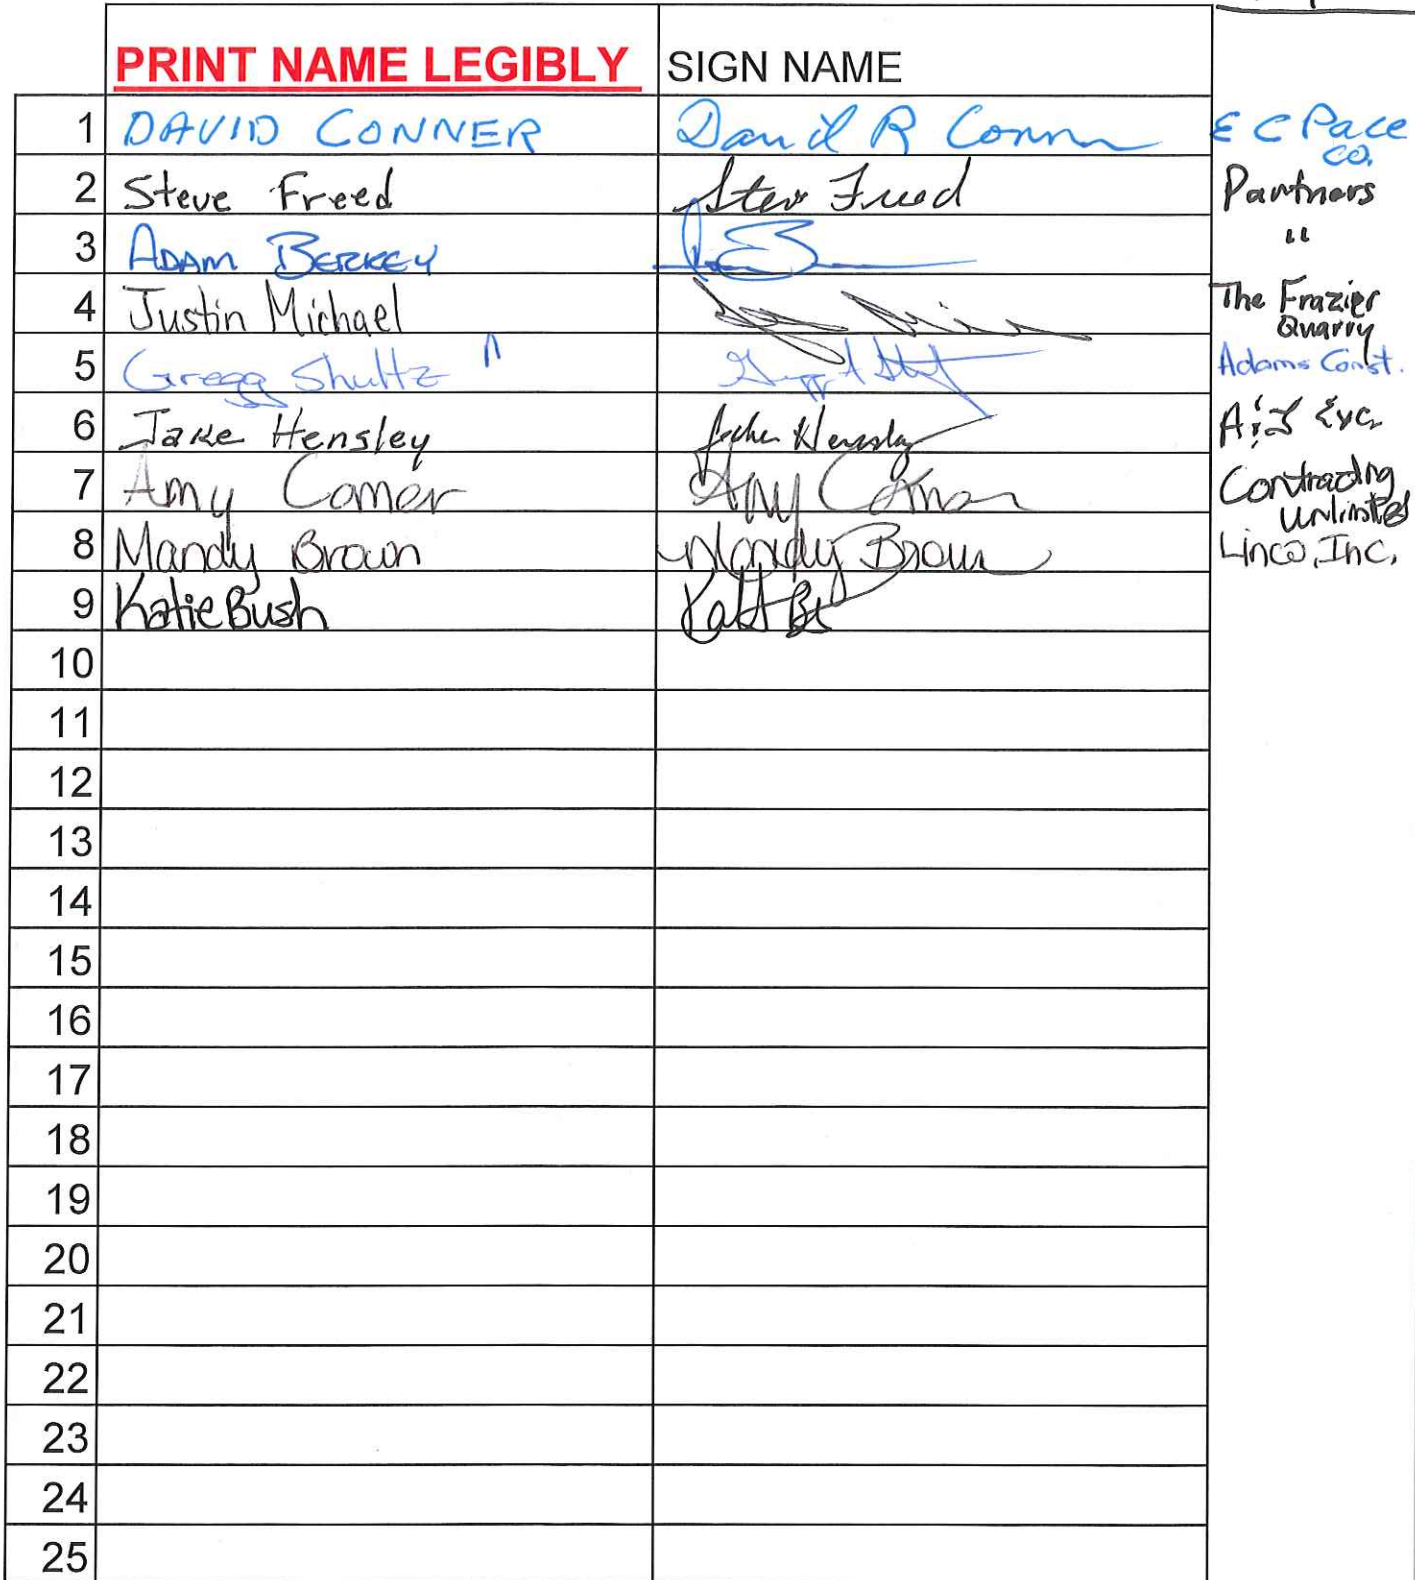 PRINT NAME LEGIBLY SIGN NAME
1 DAVID CONNER David R Conner E C Pace
Co.
2 Steve Freed Steve Freed Partners
3 ADAM BERKEY "
4 Justin Michael The Frazier
Quarry
5 Gregg Shultz Adams Const.
6 Jake Hensley Hensley
7 Amy Comer Amy Comer Contracting
Unlimited
8 Mandy Brown Mandy Brown Linco, Inc.
9 Katie Bush
10
11
12
13
14
15
16
17
18
19
20
21
22
23
24
25